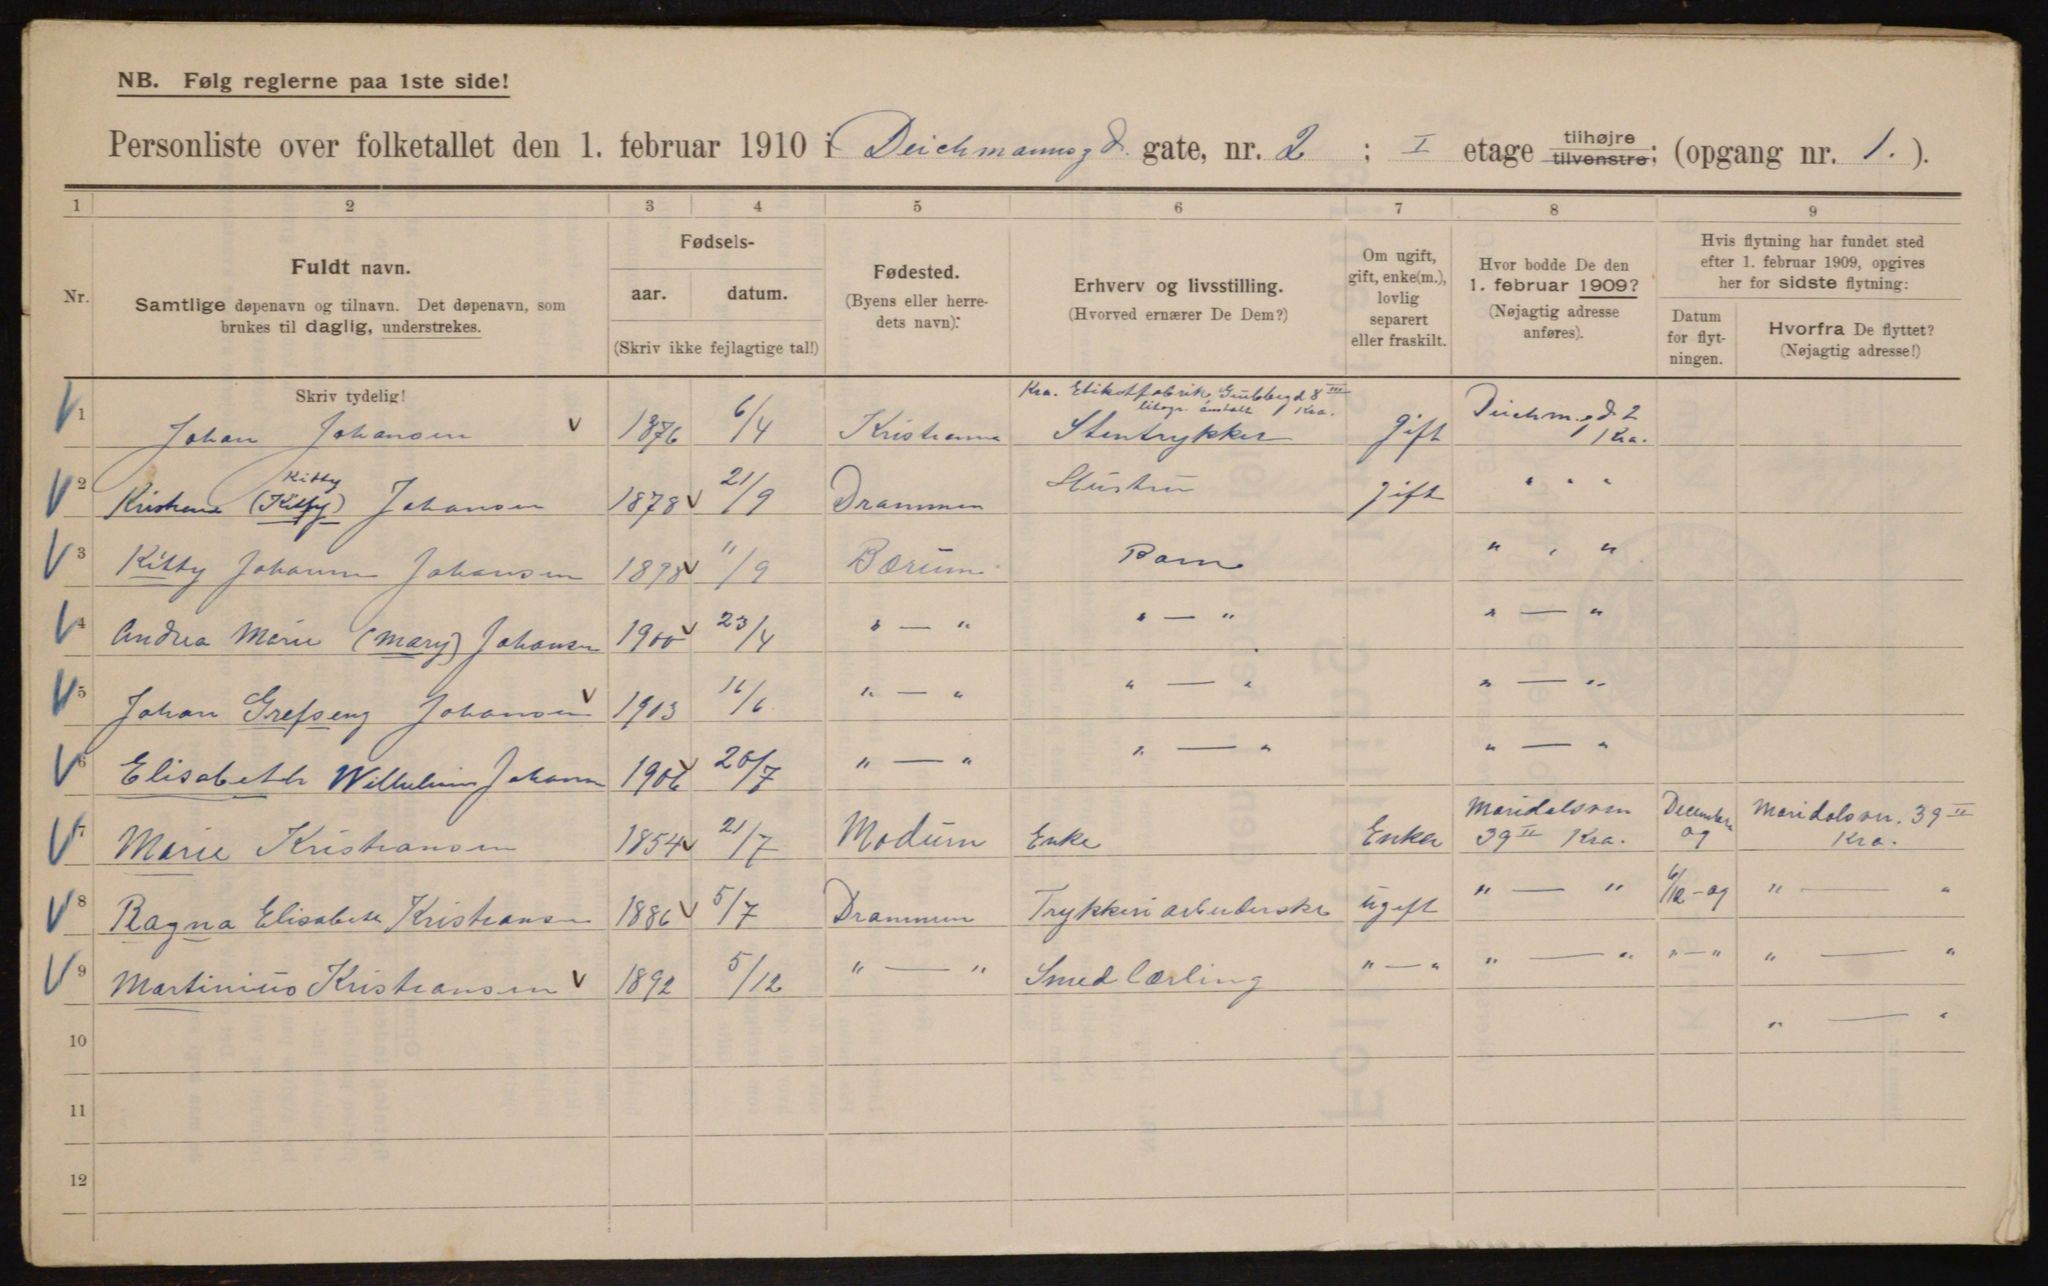 NB. Følg reglerne paa 1ste side!
Personliste over folketallet den 1. februar 1910 i Deichmannsgd. gate, nr. 2 ; I etage tilhøjre tilvenstre; (opgang nr. 1. ).
1 2 3 4 5 6 7 8 9
Nr.
Fuldt navn.
Samtlige døpenavn og tilnavn. Det døpenavn, som
brukes til daglig, understrekes.
Fødsels-
aar. datum.
(Skriv ikke fejlagtige tal!)
Fødested.
(Byens eller herre-
dets navn).
Erhverv og livsstilling.
(Hvorved ernærer De Dem?)
Om ugift,
gift, enke(m.),
lovlig
separert
eller fraskilt.
Hvor bodde De den
1. februar 1909?
(Nøjagtig adresse
anføres).
Hvis flytning har fundet sted
efter 1. februar 1909, opgives
her for sidste flytning:
Datum
for flyt-
ningen.
Hvorfra De flyttet?
(Nøjagtig adresse!)
Skriv tydelig!
Kra. Etiketfabrik, 8 III
litogr. anstalt Kra.
1 Johan Johansen v 1876 6/4 Kristiania Stentrykker gift Deichm.gd. 2
Kra.
Kitty
2 Kristiane (Kitty) Johansen 1878 v 21/9 Drammen Hustru gift " " "
3 Kitty Johanne Johansen 1898 v 11/9 Bærum Barn " " "
4 Andrea Marie (Mary) Johansen 1900 v 23/4 " — " " — " " — "
5 Johan Grefseng Johansen v 1903 16/6 " — " " — " " — "
6 Elisabeth Wilhelmine Johansen 1906 v 20/7 " — " " — " " — "
7 Marie Kristiansen 1854 v 21/7 Modum Enke Enke Maridalsven
39 II Kra. December
og Maridalsvn. 39 II
Kra.
8 Ragna Elisabeth Kristiansen 1886 v 5/7 Drammen Trykkeriarbeiderske ugift " — " 6/12 - og " — "
9 Martinius Kristiansen v 1892 5/12 " — " Smedlærling " — " " — " " — " " — "
10 " — "
11
12